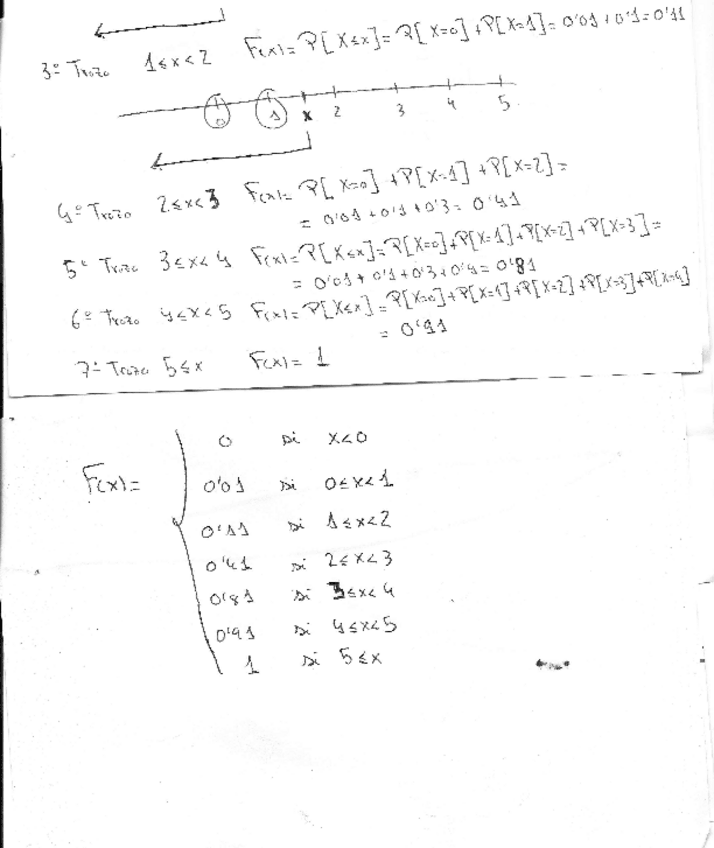 3º Trozo 1≤x<2 F(x)=P[X≤x]=P[X=0]+P[X=1]=0'01+0'1=0'11
0 1 x 2 3 4 5
4º Trozo 2≤x<3 F(x)=P[X=0]+P[X=1]+P[X=2]=
= 0'01+0'1+0'3=0'41
5º Trozo 3≤x<4 F(x)=P[X≤x]=P[X=0]+P[X=1]+P[X=2]+P[X=3]=
= 0'01+0'1+0'3+0'4=0'81
6º Trozo 4≤x<5 F(x)=P[X≤x]=P[X=0]+P[X=1]+P[X=2]+P[X=3]+P[X=4]
= 0'91
7º Trozo 5≤x F(x)= 1
0 si x<0
F(x)= 0'01 si 0≤x<1
0'11 si 1≤x<2
0'41 si 2≤x<3
0'81 si 3≤x<4
0'91 si 4≤x<5
1 si 5≤x